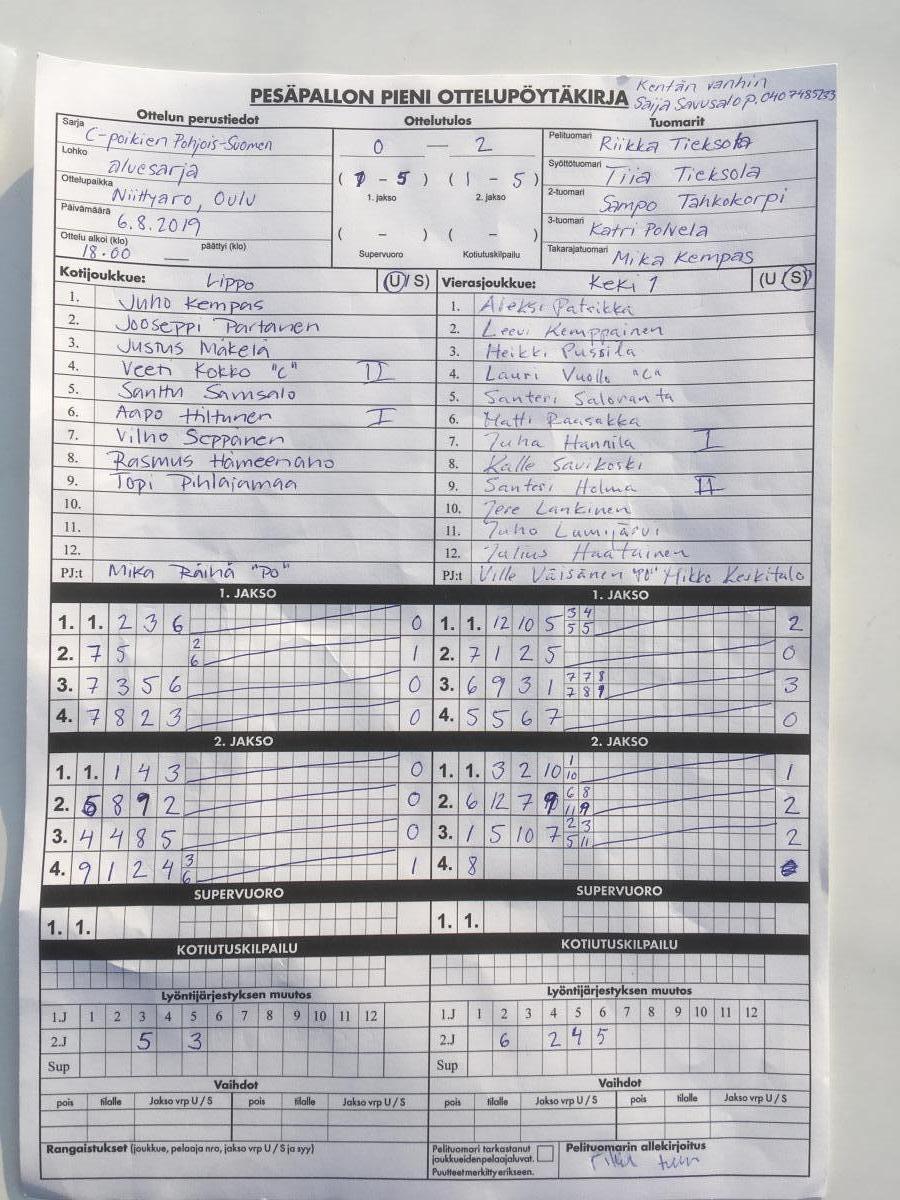 Kentän vanhin
PESÄPALLON PIENI OTTELUPÖYTÄKIRJA Saija Savusalo p. 0407485233
Ottelun perustiedot Ottelutulos Tuomarit
Sarja C-poikien Pohjois-Suomen
Lohko aluesarja
Ottelupaikka Niittyaro, Oulu
Päivämäärä 6.8.2019
Ottelu alkoi (klo) 18.00 päättyi (klo)
0 — 2
(1 - 5) (1 - 5)
1. jakso 2. jakso
( - ) ( - )
Supervuoro Kotiutuskilpailu
Pelituomari Riikka Tieksola
Syöttötuomari Tiia Tieksola
2-tuomari Sampo Tahkokorpi
3-tuomari Katri Polvela
Takarajatuomari Mika Kempas
Kotijoukkue: Lippo (U/S)
1. Juho Kempas
2. Jooseppi Partanen
3. Justus Mäkelä
4. Veeti Kokko "C" II
5. Santtu Samsalo
6. Aapo Hiltunen I
7. Vilho Seppänen
8. Rasmus Hämeenaho
9. Topi Pihlajamaa
10.
11.
12.
PJ:t Mika Räihä "PO"
Vierasjoukkue: KeKi 1 (U/S)
1. Aleksi Patrikka
2. Leevi Kemppainen
3. Heikki Pussila
4. Lauri Vuollo "C"
5. Santeri Saloranta
6. Matti Raasakka
7. Juha Hannila I
8. Kalle Savikoski
9. Santeri Holma II
10. Jere Lankinen
11. Juho Lumijärvi
12. Julius Haatainen
PJ:t Ville Väisänen "PO" Mikko Keskitalo
1. JAKSO
1. 1. 2 3 6 0
2. 7 5 2 6 1
3. 7 3 5 6 0
4. 7 8 2 3 0
1. JAKSO
1. 1. 12 10 5 3 4 5 5 2
2. 7 1 2 5 0
3. 6 9 3 1 7 7 8 7 8 9 3
4. 5 5 6 7 0
2. JAKSO
1. 1. 1 4 3 0
2. 6 8 9 2 0
3. 4 4 8 5 0
4. 9 1 2 4 3 6 1
2. JAKSO
1. 1. 3 2 10 1 10 1
2. 6 12 7 9 6 8 11 9 2
3. 1 5 10 7 2 3 5 11 2
4. 8
SUPERVUORO SUPERVUORO
1. 1. 1. 1.
KOTIUTUSKILPAILU KOTIUTUSKILPAILU
Lyöntijärjestyksen muutos Lyöntijärjestyksen muutos
1.J 1 2 3 4 5 6 7 8 9 10 11 12 1.J 1 2 3 4 5 6 7 8 9 10 11 12
2.J 5 3 2.J 6 2 4 5
Sup Sup
Vaihdot Vaihdot
pois tilalle Jakso vrp U / S pois tilalle Jakso vrp U / S pois tilalle Jakso vrp U / S pois tilalle Jakso vrp U / S
Rangaistukset (joukkue, pelaaja nro, jakso vrp U / S ja syy)
Pelituomari tarkastanut
joukkueiden pelaajaluvat.
Puutteet merkitty erikseen.
Pelituomarin allekirjoitus